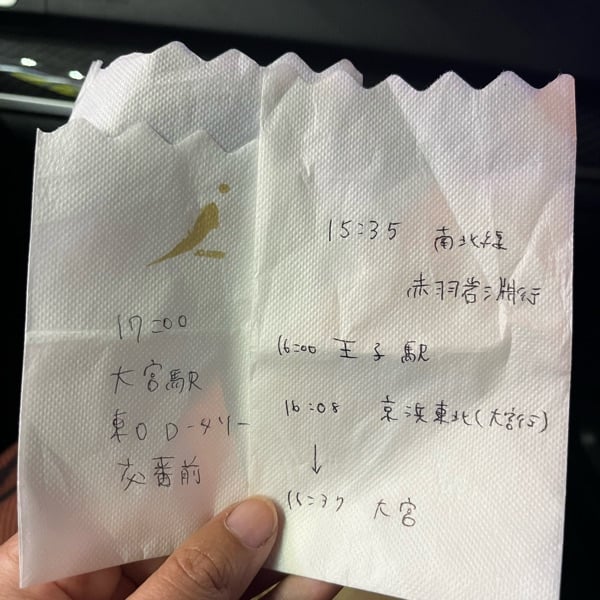 15:35 南北線
赤羽岩淵行
16:00 王子駅
16:08 京浜東北(大宮行)
↓
16:37 大宮
17:00
大宮駅
東口ロータリー
交番前